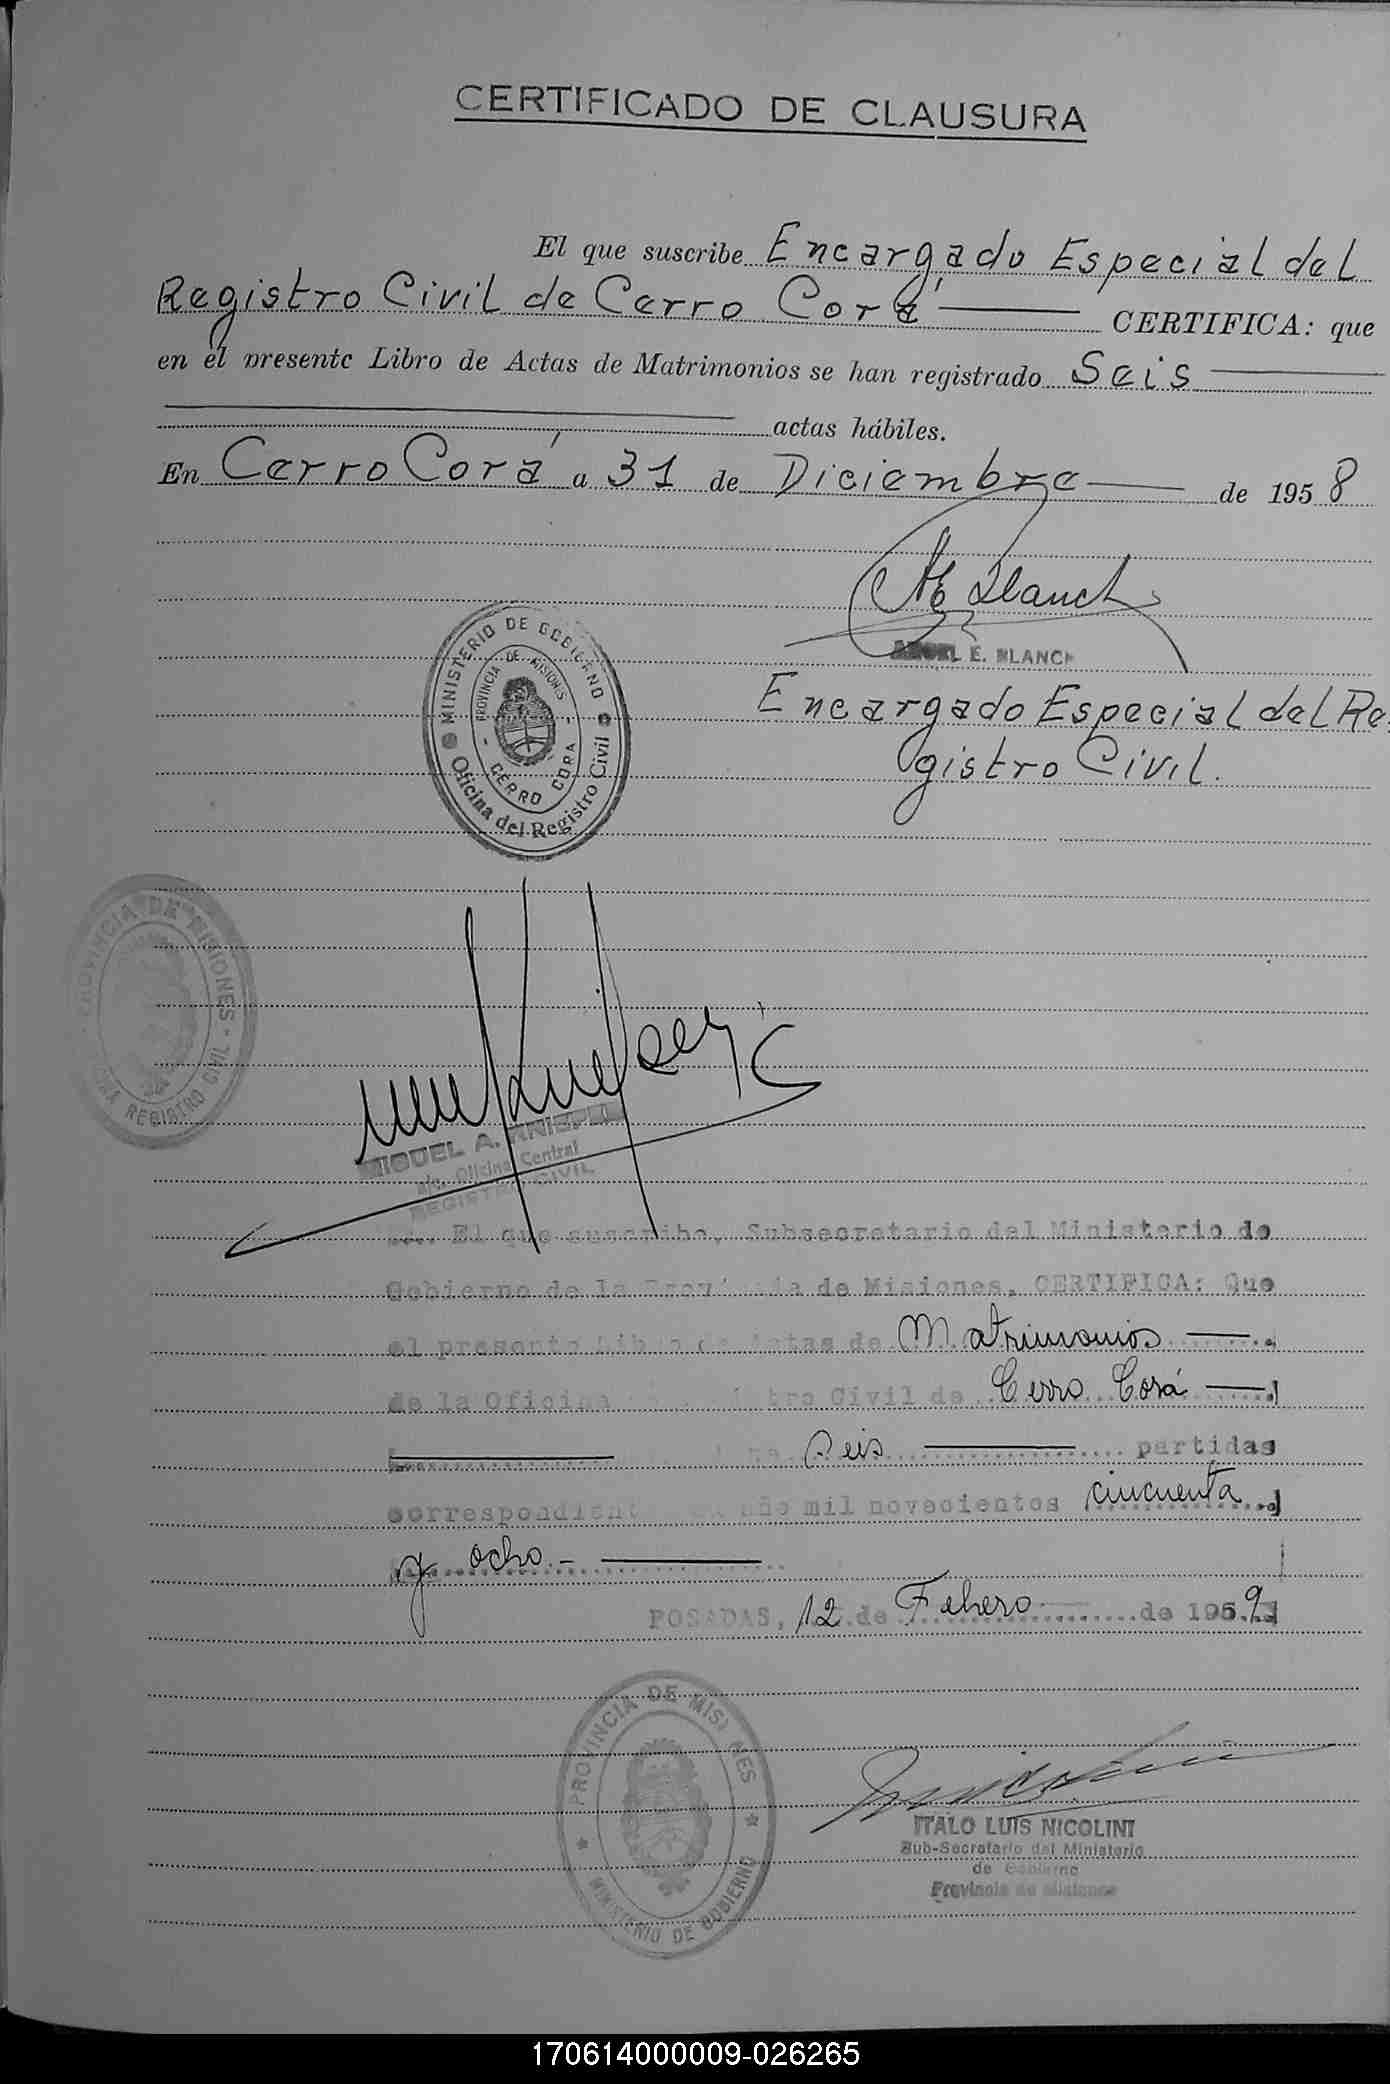 CERTIFICADO DE CLAUSURA
El que suscribe Encargado Especial del
Registro Civil de Cerro Corá CERTIFICA: que
en el presente Libro de Actas de Matrimonios se han registrado Seis
actas hábiles.
En Cerro Corá a 31 de Diciembre de 1958
E. BLANCH
Encargado Especial del Re
gistro Civil.
MINISTERIO DE GOBIERNO
PROVINCIA DE MISIONES
CERRO CORA
Oficina del Registro Civil
PROVINCIA DE MISIONES
REGISTRO CIVIL
MIGUEL A. KNIEPEL
a/c. Oficina Central
REGISTRO CIVIL
El que suscribe, Subsecretario del Ministerio de
Gobierno de la Provincia de Misiones, CERTIFICA: Que
el presente Libro de Actas de Matrimonios
de la Oficina Civil de Cerro Corá
Seis partidas
correspondient año mil novecientos cincuenta
y ocho.-
POSADAS, 12 de Febrero de 1959
PROVINCIA DE MISIONES
MINISTERIO DE GOBIERNO
ITALO LUIS NICOLINI
Sub-Secretario del Ministerio
de Gobierno
Provincia de Misiones
170614000009-026265